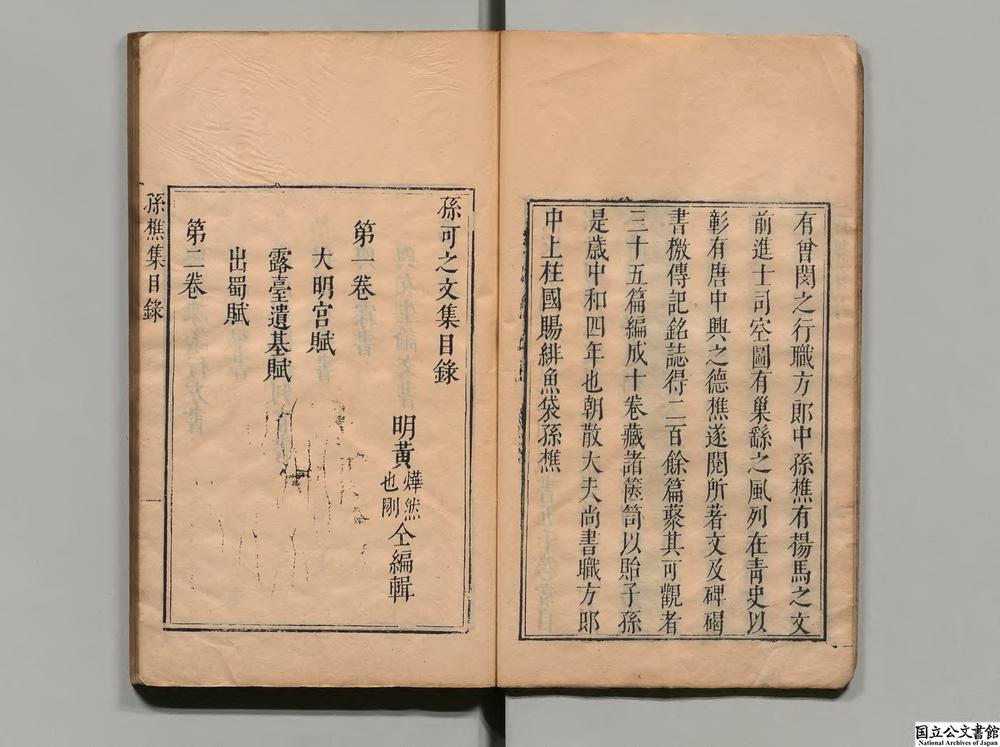 有曾閔之行職方郎中孫樵有揚馬之文
前進士司空圖有巢繇之風列在青史以
彰有唐中興之德樵遂閱所著文及碑碣
書檄傳記銘誌得二百餘篇蘂其可觀者
三十五篇編成十卷藏諸篋笥以貽子孫
是歳中和四年也朝散大夫尚書職方郎
中上柱國賜緋魚袋孫樵
孫可之文集目錄
明黃燁然也剛仝編輯
第一卷
大明宮賦
露臺遺基賦
出蜀賦
第二卷
孫樵集目錄
国立公文書館
National Archives of Japan